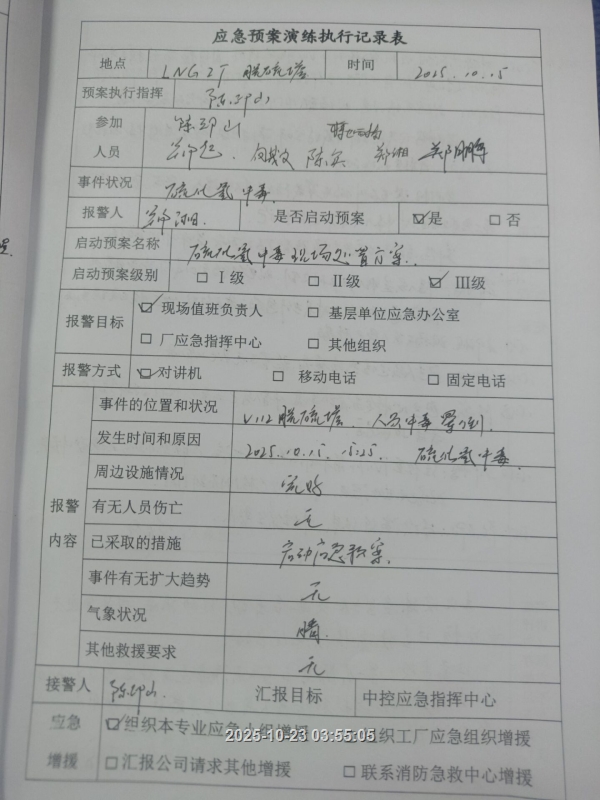 应急预案演练执行记录表
地点 LNG 2T 脱硫塔 时间 2025.10.15
预案执行指挥 陈印山
参加 陈印山
人员 向斌文 陈宾 郑湘 郑鹏
事件状况 硫化氢中毒
报警人 是否启动预案 ☑是 □否
启动预案名称 硫化氢中毒现场处置方案
启动预案级别 □Ⅰ级 □Ⅱ级 ☑Ⅲ级
报警目标 ☑现场值班负责人 □基层单位应急办公室
□厂应急指挥中心 □其他组织
报警方式 ☑对讲机 □移动电话 □固定电话
事件的位置和状况 V112脱硫塔 人员中毒晕倒.
发生时间和原因 2025.10.15. 15:25. 硫化氢中毒.
周边设施情况 完好
报警 有无人员伤亡 无
内容 已采取的措施 启动应急预案.
事件有无扩大趋势 无
气象状况 晴.
其他救援要求 无
接警人 陈印山. 汇报目标 中控应急指挥中心
应急 ☑组织本专业应急小组增援 组织工厂应急组织增援
2025-10-23 03:55:05
增援 □汇报公司请求其他增援 □联系消防急救中心增援